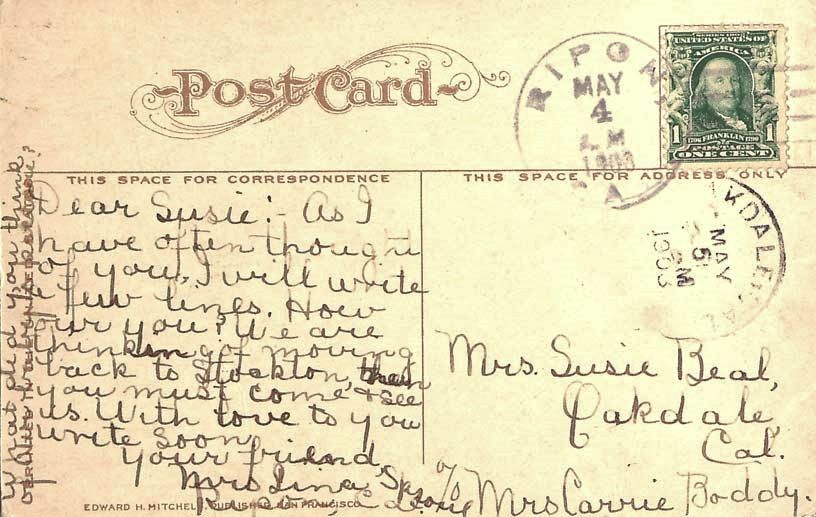 Post Card
RIPON
MAY
4
SERIES 1902
UNITED STATES OF
AMERICA
1 1706 FRANKLIN 1790 1
POSTAGE
ONE CENT
THIS SPACE FOR CORRESPONDENCE
THIS SPACE FOR ADDRESS ONLY
Dear Susie:- As I
have often thought
of you, I will write
a few lines. How
are you? We are
thinking of moving
back to Stockton, then
you must come & see
us. With love to you
write soon
Your friend,
Mrs Lina
What did you think
OAKDALE, CAL.
MAY
5
M
Mrs. Susie Beal,
Oakdale,
Cal.
c/o Mrs Carrie Boddy.
EDWARD H. MITCHELL, PUBLISHER, SAN FRANCISCO